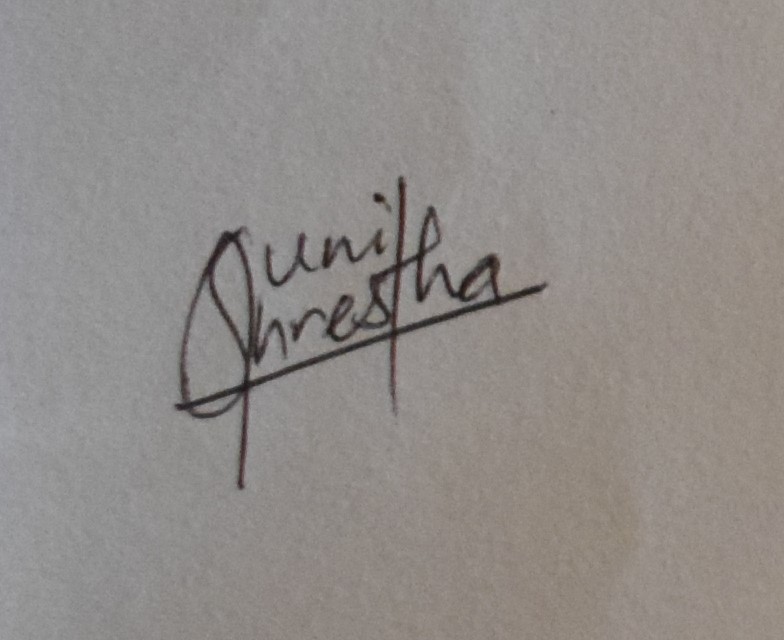 Sunil
Shrestha